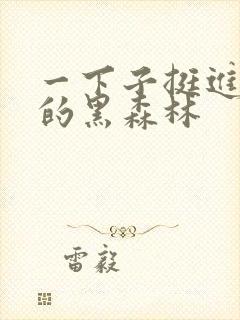 一下子挺进
的黑森林
雷毅